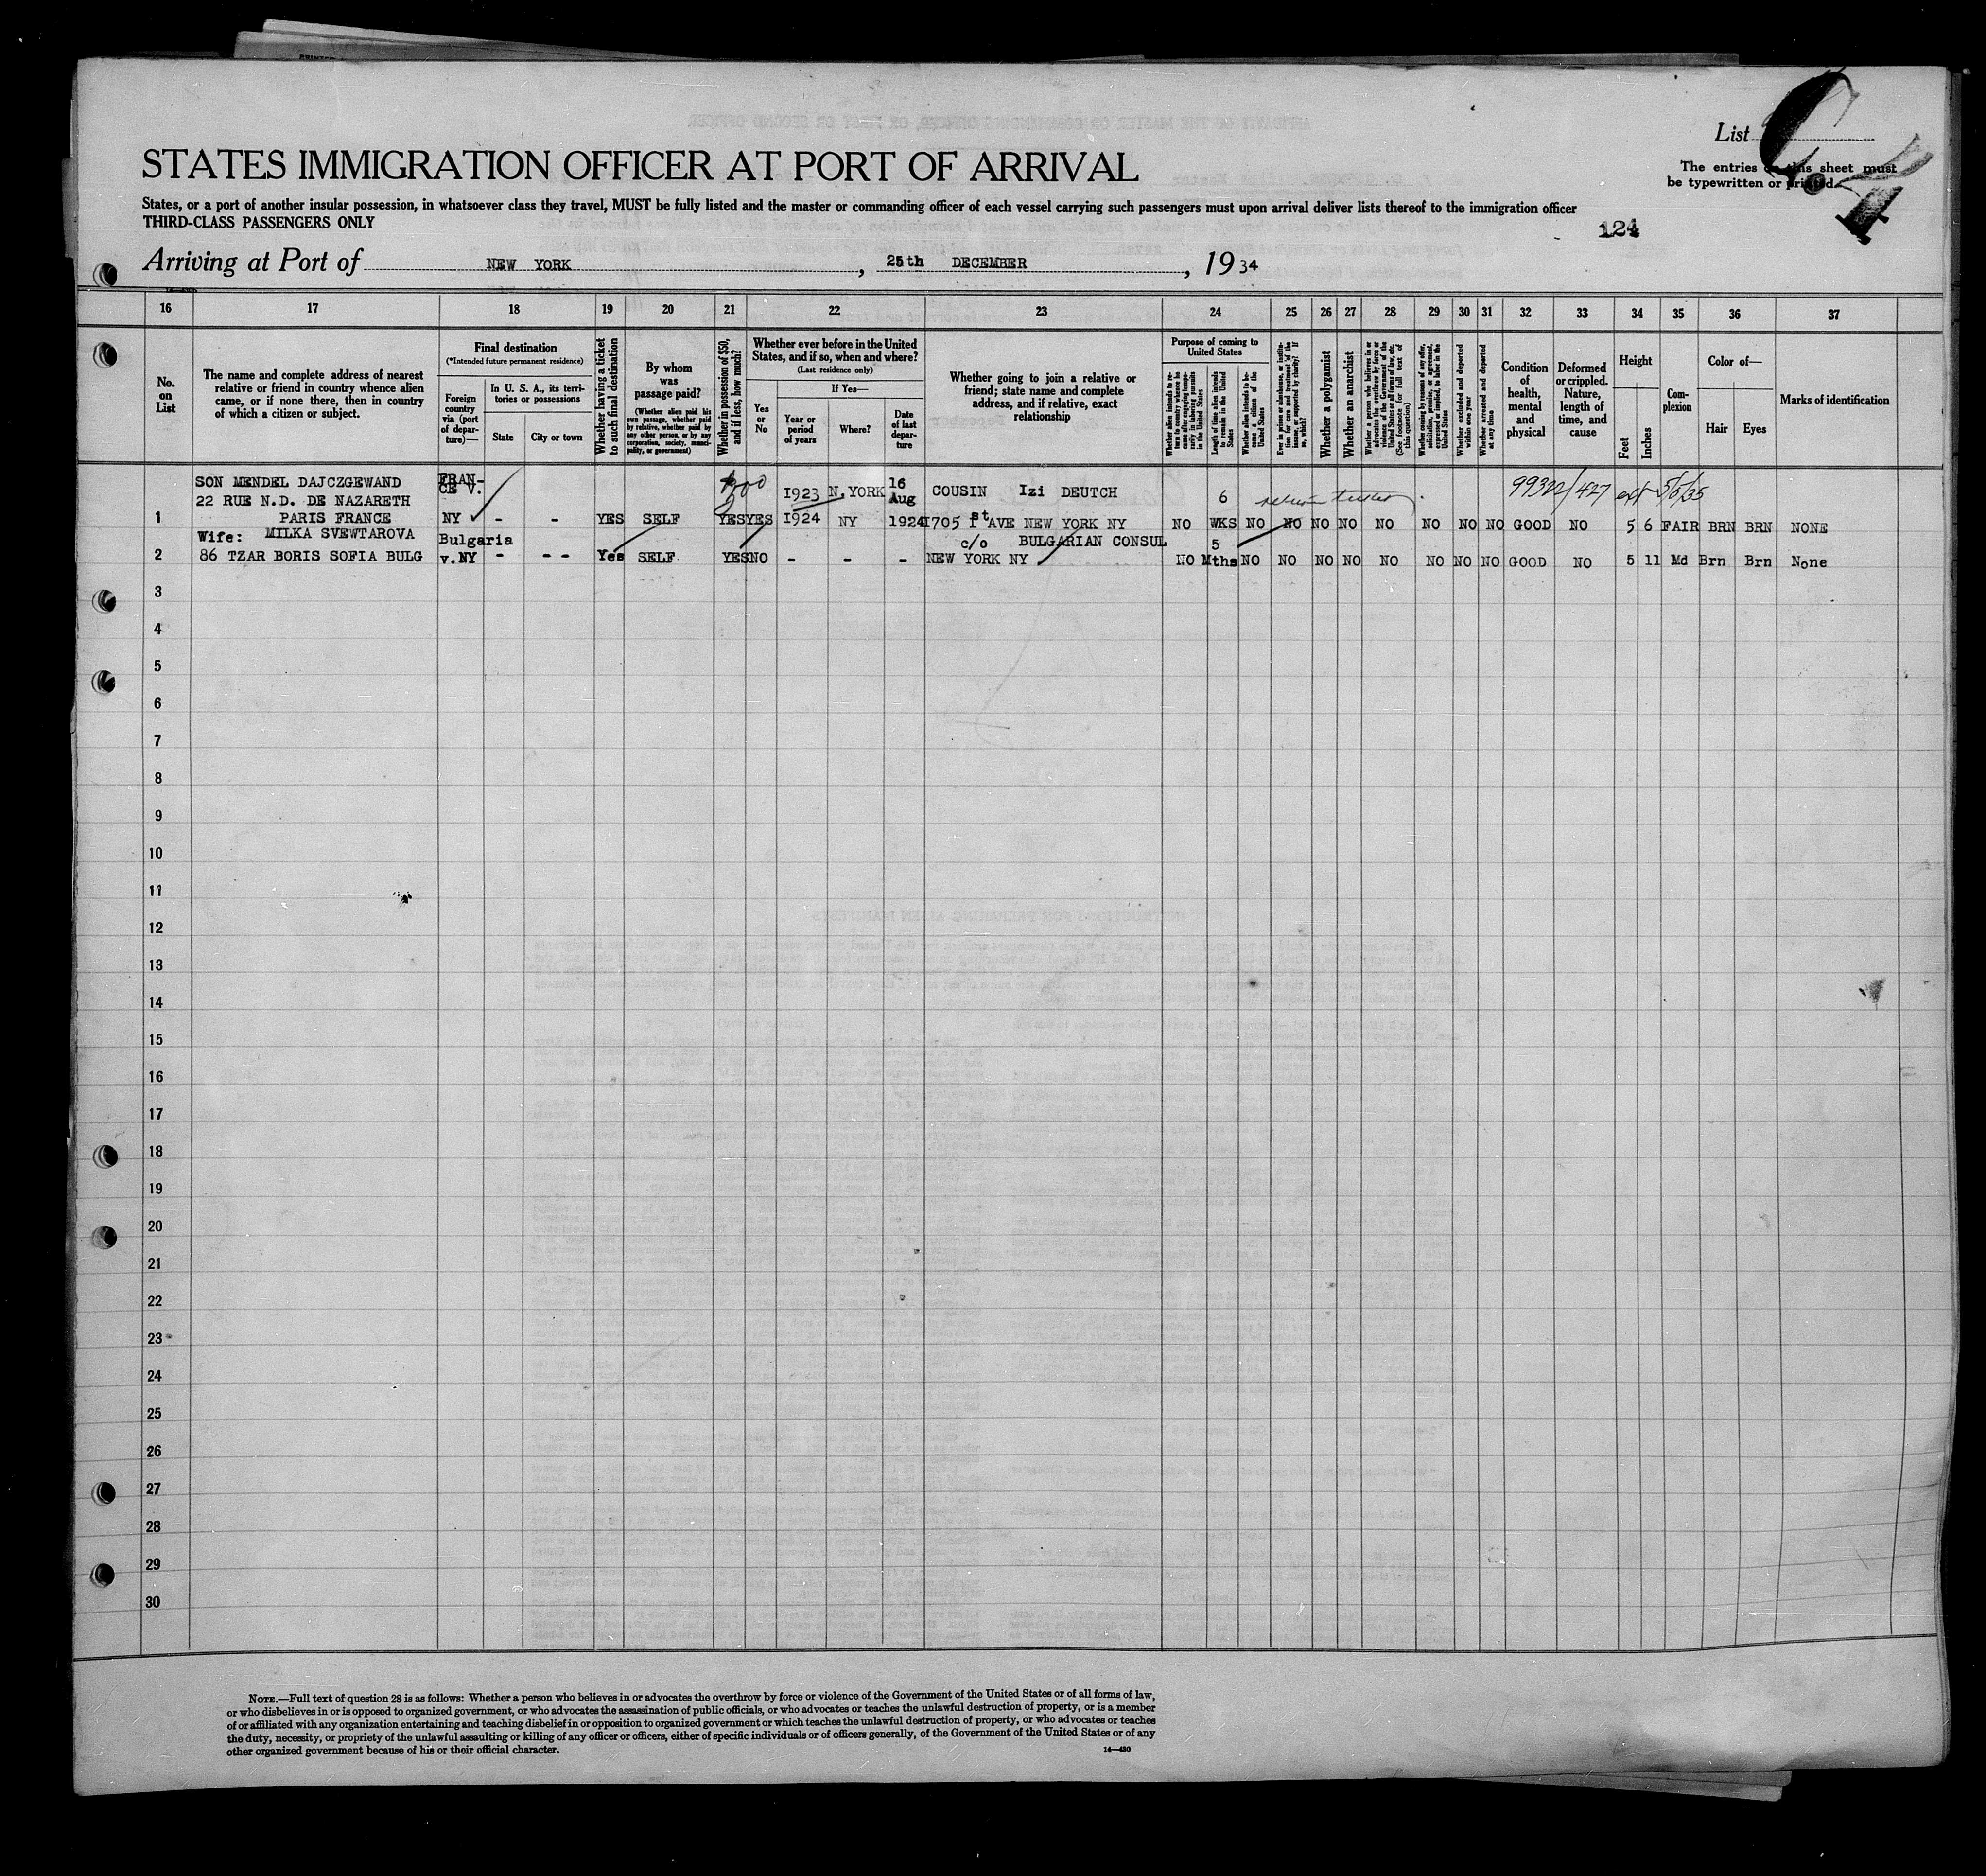 List
The entries on this sheet must
be typewritten or printed.
STATES IMMIGRATION OFFICER AT PORT OF ARRIVAL
States, or a port of another insular possession, in whatsoever class they travel, MUST be fully listed and the master or commanding officer of each vessel carrying such passengers must upon arrival deliver lists thereof to the immigration officer
THIRD-CLASS PASSENGERS ONLY
124
Arriving at Port of NEW YORK, 25th DECEMBER, 1934
16 17 18 19 20 21 22 23 24 25 26 27 28 29 30 31 32 33 34 35 36 37
No. on List
The name and complete address of nearest relative or friend in country whence alien came, or if none there, then in country of which a citizen or subject.
Final destination
(*Intended future permanent residence)
Foreign country via (port of departure)—
In U. S. A., its territories or possessions
State
City or town
Whether having a ticket to such final destination
By whom was passage paid?
(Whether alien paid his own passage, whether paid by relative, whether paid by any other person, or by any corporation, society, municipality, or government)
Whether in possession of $50, and if less, how much?
Whether ever before in the United States, and if so, when and where?
(Last residence only)
Yes or No
If Yes—
Year or period of years
Where?
Date of last departure
Whether going to join a relative or friend; state name and complete address, and if relative, exact relationship
Purpose of coming to United States
Whether alien intends to return to country whence he came after engaging temporarily in laboring pursuits in the United States
Length of time alien intends to remain in the United States
Whether alien intends to become a citizen of the United States
Ever in prison or almshouse, or institution for care and treatment of the insane, or supported by charity? If so, which?
Whether a polygamist
Whether an anarchist
Whether a person who believes in or advocates the overthrow by force or violence of the Government of the United States or all forms of law, etc. (See footnote for full text of this question)
Whether coming by reasons of any offer, solicitation, promise, or agreement, expressed or implied, to labor in the United States
Whether excluded and deported within one year
Whether arrested and deported at any time
Condition of health, mental and physical
Deformed or crippled. Nature, length of time, and cause
Height
Feet
Inches
Complexion
Color of—
Hair
Eyes
Marks of identification
SON MENDEL DAJCZGEWAND FRAN- 16
22 RUE N.D. DE NAZARETH CE V. 1923 N.YORK Aug COUSIN Izi DEUTCH 6 99322/427 exp 5/5/35
1 PARIS FRANCE NY - - YES SELF YES YES 1924 NY 1924 1705 1st AVE NEW YORK NY NO WKS NO NO NO NO NO NO NO NO GOOD NO 5 6 FAIR BRN BRN NONE
Wife: MILKA SVEWTAROVA Bulgaria c/o BULGARIAN CONSUL 5
2 86 TZAR BORIS SOFIA BULG v.NY - - - Yes SELF YES NO - - - NEW YORK NY NO Mths NO NO NO NO NO NO NO NO GOOD NO 5 11 Md Brn Brn None
3
4
5
6
7
8
9
10
11
12
13
14
15
16
17
18
19
20
21
22
23
24
25
26
27
28
29
30
NOTE.—Full text of question 28 is as follows: Whether a person who believes in or advocates the overthrow by force or violence of the Government of the United States or of all forms of law,
or who disbelieves in or is opposed to organized government, or who advocates the assassination of public officials, or who advocates or teaches the unlawful destruction of property, or is a member
of or affiliated with any organization entertaining and teaching disbelief in or opposition to organized government or which teaches the unlawful destruction of property, or who advocates or teaches
the duty, necessity, or propriety of the unlawful assaulting or killing of any officer or officers, either of specific individuals or of officers generally, of the Government of the United States or of any
other organized government because of his or their official character.
14—430